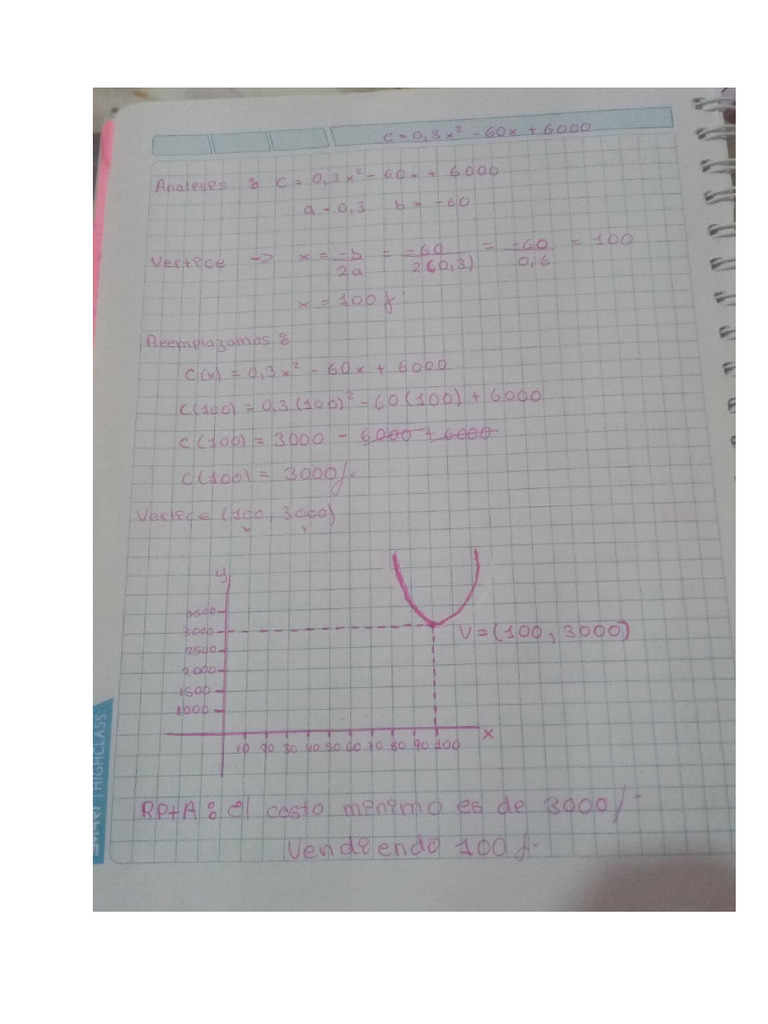 C = 0,3x² - 60x + 6000
Analeses : C = 0,3x² - 60x + 6000
a = 0,3 b = -60
Vertece -> x = -b/2a = -60/2(0,3) = -60/0,6 = 100
x = 100
Reemplazamos :
C(x) = 0,3x² - 60x + 6000
C(100) = 0,3(100)² - 60(100) + 6000
C(100) = 3000 - 6000 + 6000
C(100) = 3000
Vertece (100, 3000)
y
3500
3000
V = (100, 3000)
2500
2000
1500
1000
10 20 30 40 50 60 70 80 90 100 x
HIGHCLASS
RPTA : el costo menemo es de 3000
Vendeendo 100